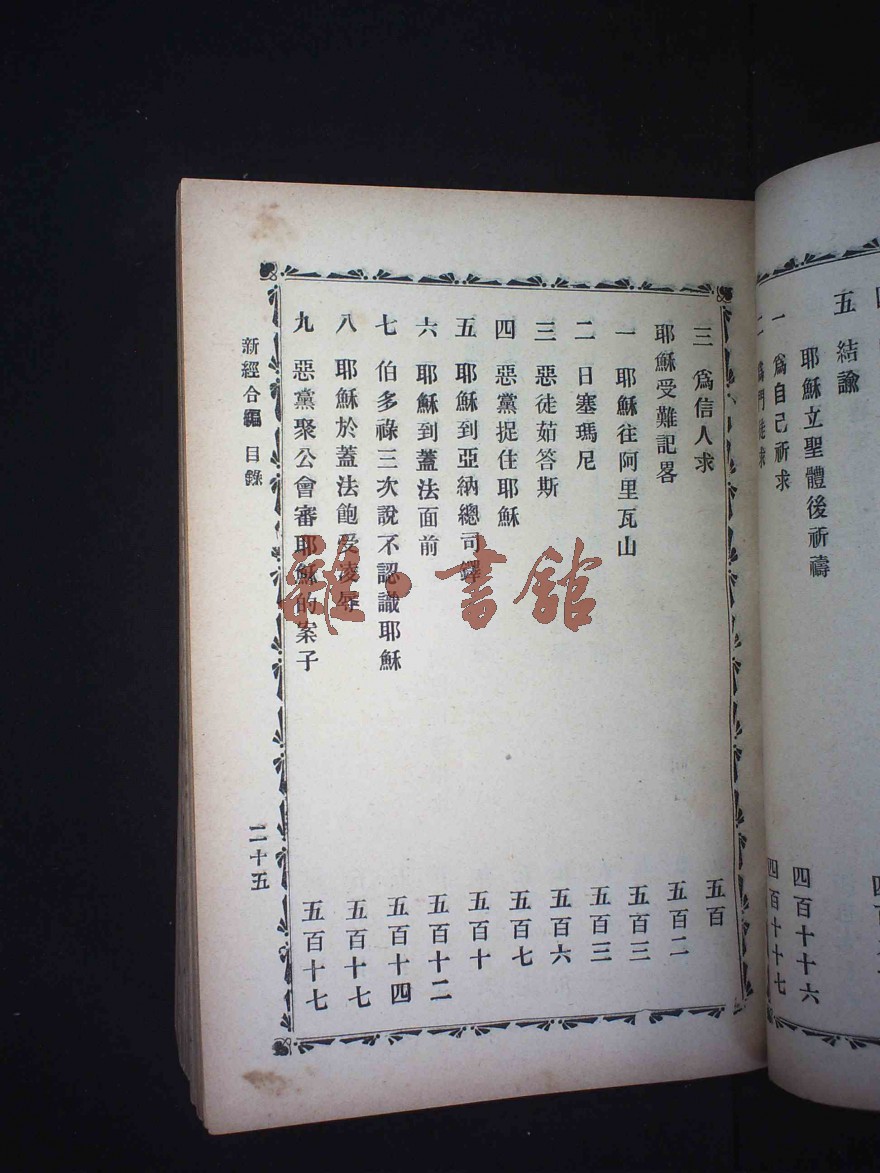 五 結論
耶穌立聖體後祈禱 四百十六
一 爲自己祈求 四百十七
二 爲門徒求
三 爲信人求 五百
耶穌受難記畧 五百二
一 耶穌往阿里瓦山 五百三
二 日塞瑪尼 五百三
三 惡徒茹答斯 五百六
四 惡黨捉住耶穌 五百七
五 耶穌到亞納總司鐸 五百十
六 耶穌到蓋法面前 五百十二
七 伯多祿三次說不認識耶穌 五百十四
八 耶穌於蓋法飽受凌辱 五百十七
九 惡黨聚公會審耶穌的案子 五百十七
新經合編 目錄 二十五
雜·書館